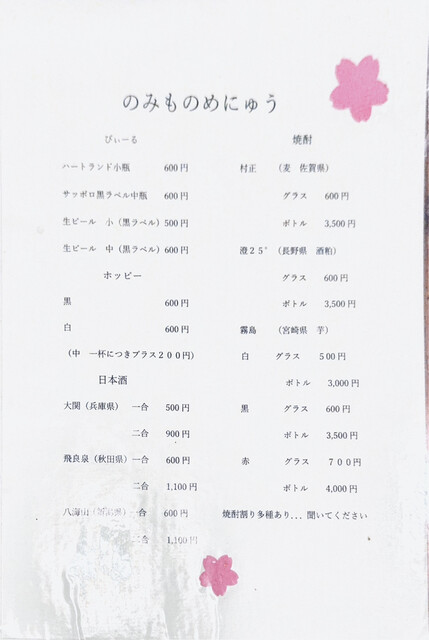 のみものめにゅう
びぃーる
ハートランド小瓶 600円
サッポロ黒ラベル中瓶 600円
生ビール 小（黒ラベル）500円
生ビール 中（黒ラベル）600円
ホッピー
黒 600円
白 600円
（中 一杯につきプラス２００円）
日本酒
大関（兵庫県） 一合 500円
二合 900円
飛良泉（秋田県）一合 600円
二合 1,100円
八海山（新潟県）一合 600円
二合 1,100円
焼酎
村正 （麦 佐賀県）
グラス 600円
ボトル 3,500円
澄２５°（長野県 酒粕）
グラス 600円
ボトル 3,500円
霧島 （宮崎県 芋）
白 グラス 500円
ボトル 3,000円
黒 グラス 600円
ボトル 3,500円
赤 グラス ７００円
ボトル 4,000円
焼酎割り多種あり...聞いてください